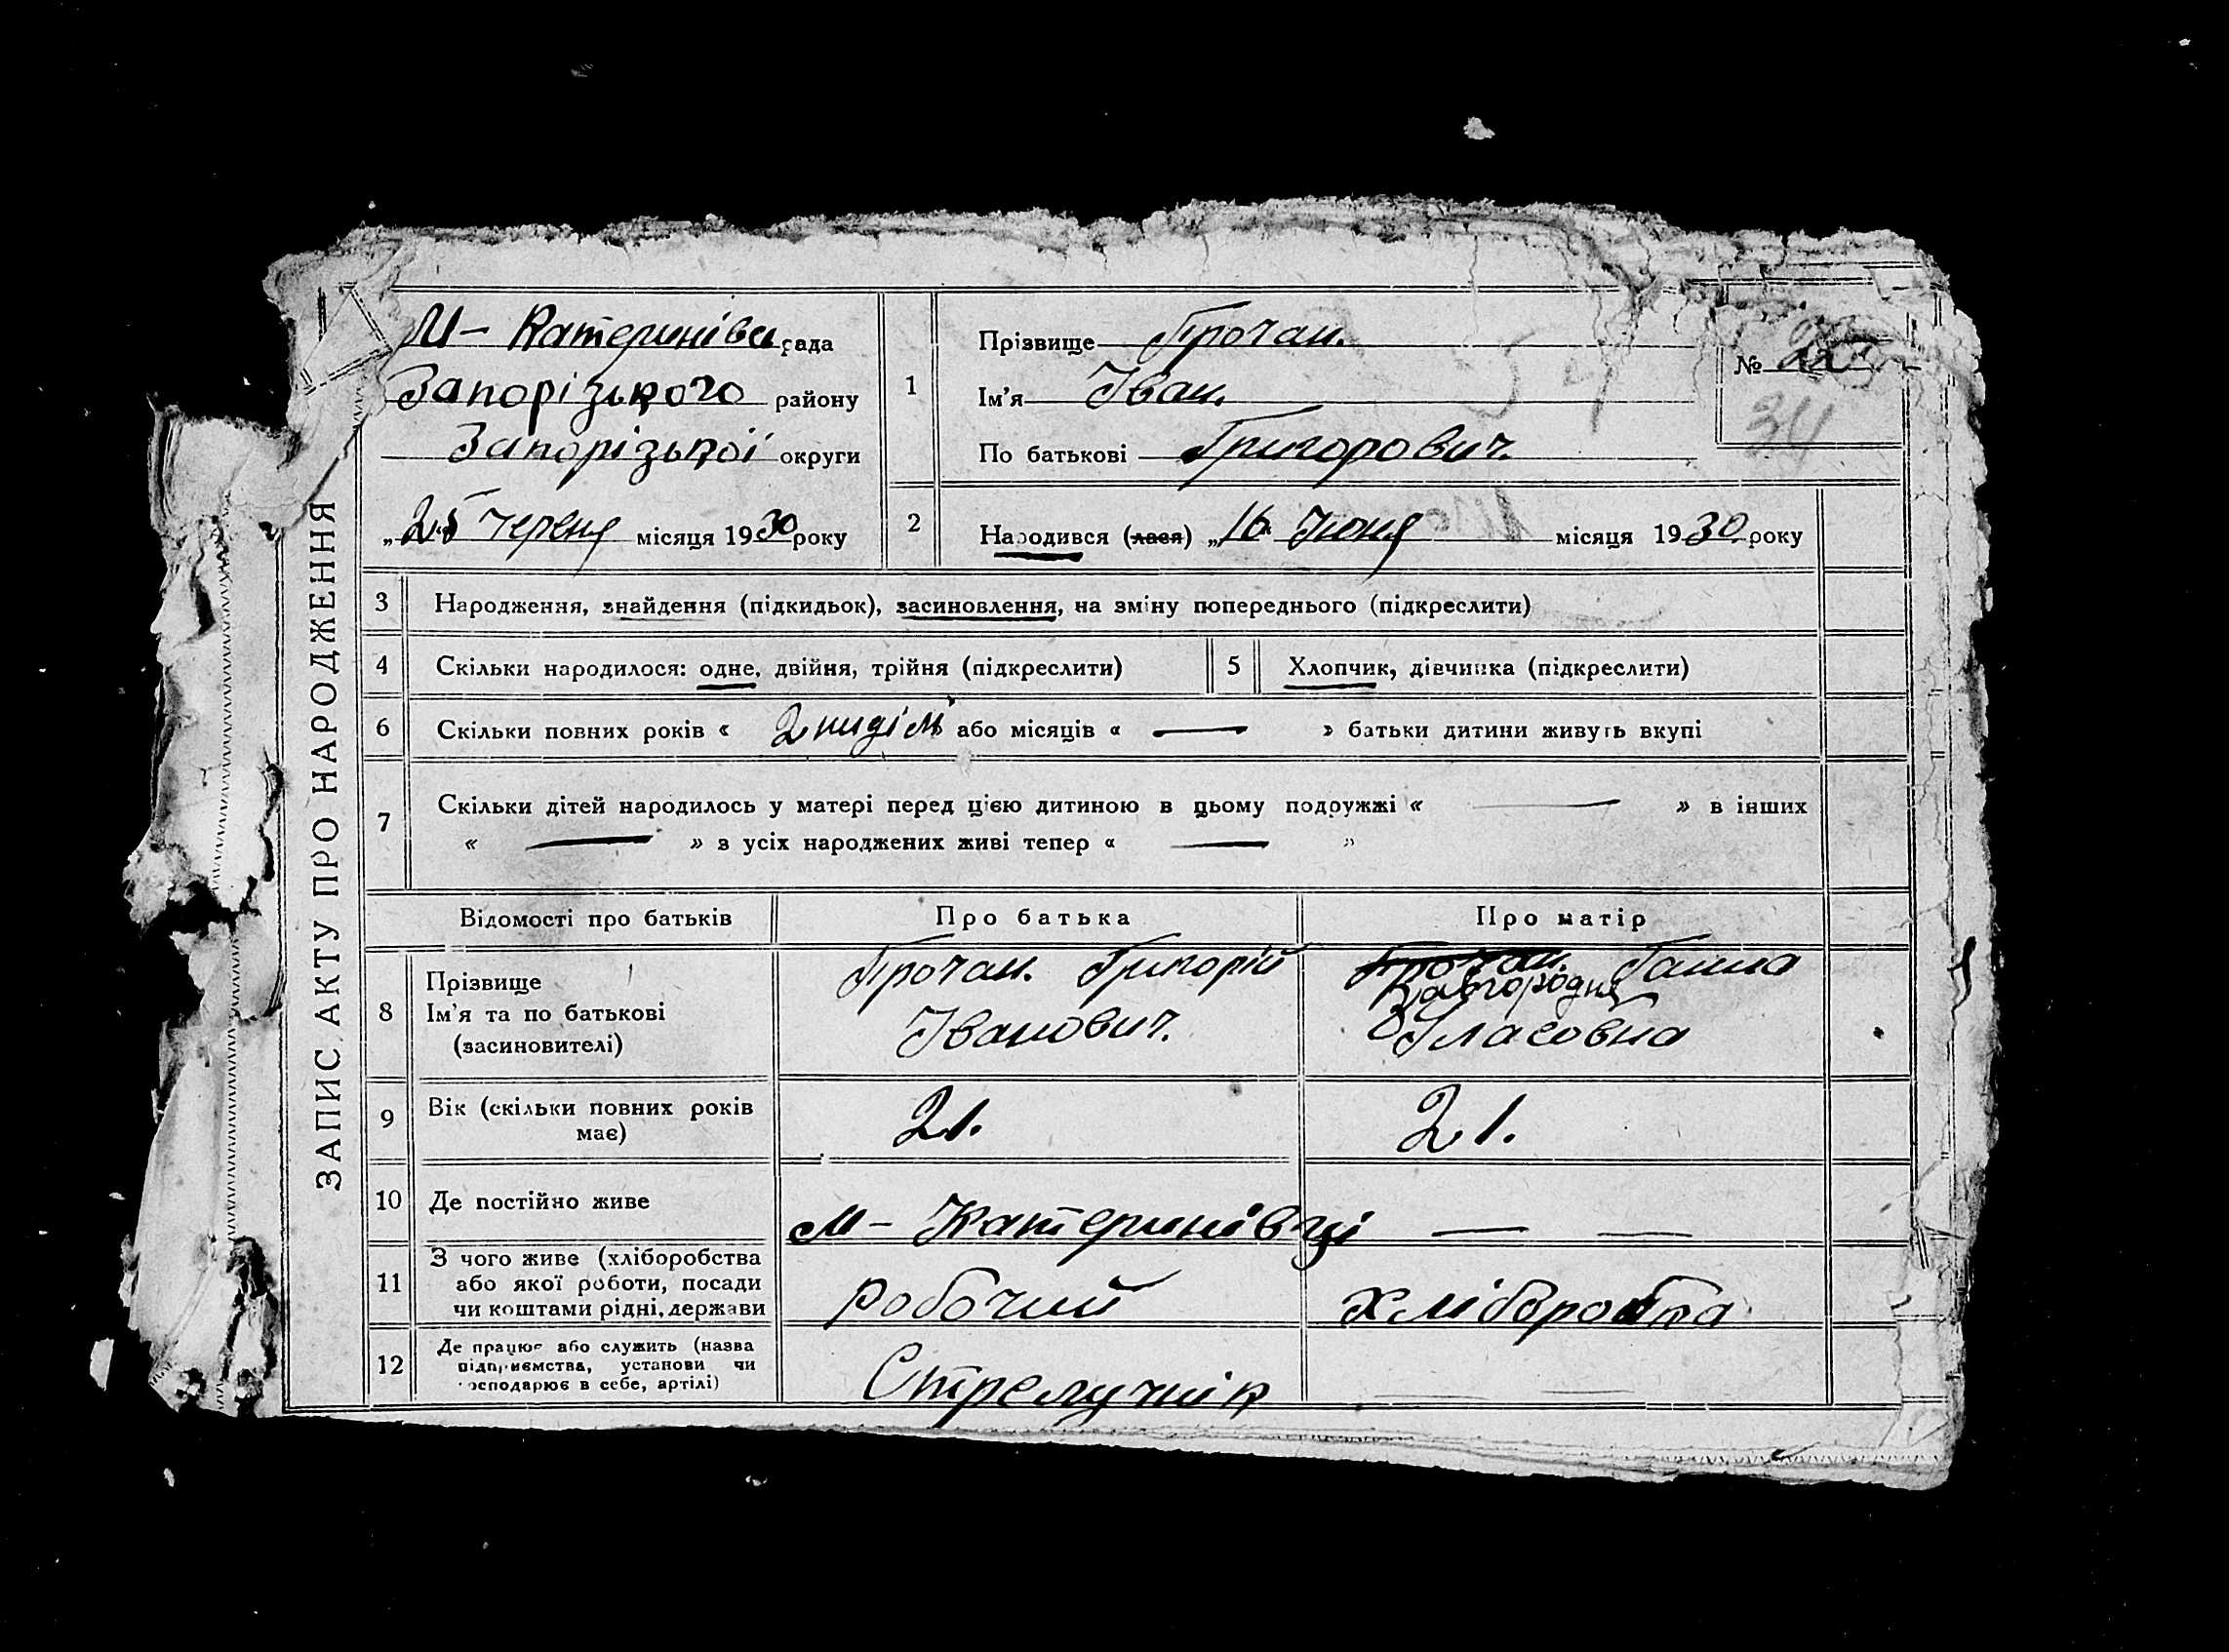 ЗАПИС АКТУ ПРО НАРОДЖЕННЯ
М- Катеринівсь рада
Запорізького району
Запорізької округи
„25 Червня місяця 1930 року
1
Прізвище Прочан.
Ім'я Іван.
По батькові Григорович.
№
34
2
Народився (лася) „16" Июня місяця 1930 року
3 Народження, знайдення (підкидьок), засиновлення, на зміну попереднього (підкреслити)
4 Скільки народилося: одне, двійня, трійня (підкреслити) 5 Хлопчик, дівчинка (підкреслити)
6 Скільки повних років « 2 ниділі або місяців « — » батьки дитини живуть вкупі
7 Скільки дітей народилось у матері перед цією дитиною в цьому подружжі « — » в інших
« — » з усіх народжених живі тепер « — »
Відомості про батьків Про батька Про матір
8 Прізвище
Ім'я та по батькові
(засиновителі)
Прочан. Григорій
Іванович.
Прочан Ганна
Завгородня
Власовна
9 Вік (скільки повних років
має)
21. 21.
10 Де постійно живе М- Катеринівці — —
11 З чого живе (хліборобства
або якої роботи, посади
чи коштами рідні, держави
робочий хліборобка
12 Де працює або служить (назва
підприємства, установи чи
господарює в себе, артілі)
Стрелучнік — —